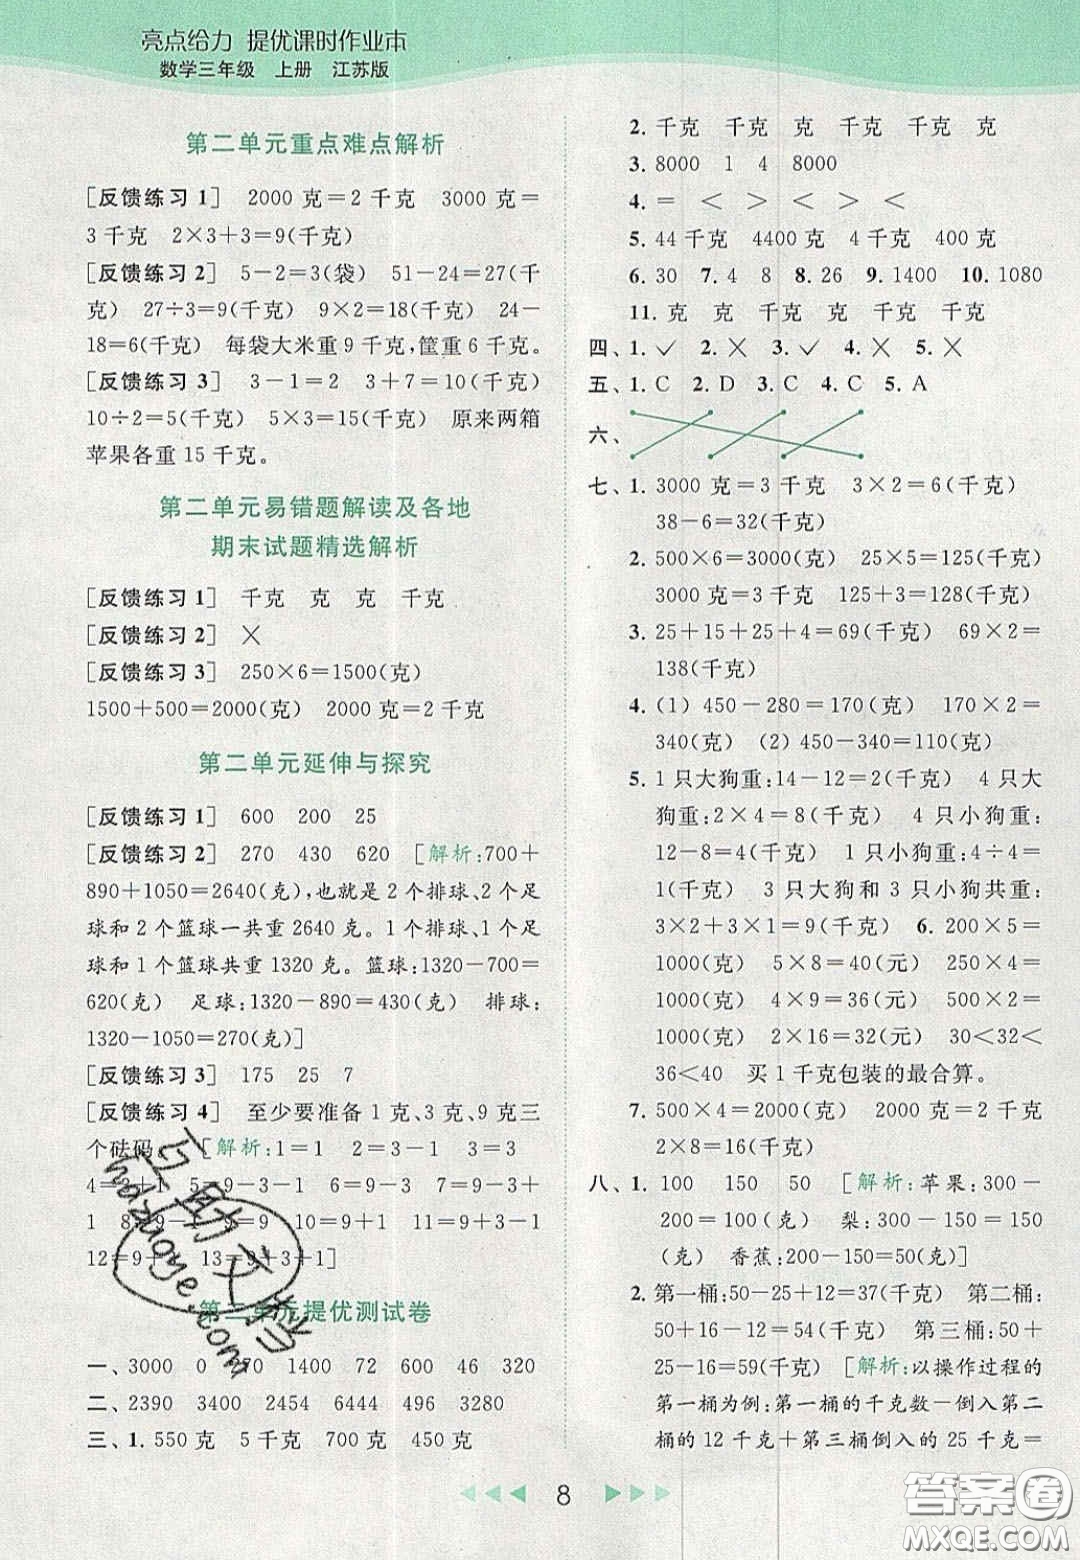 亮点给力 提优课时作业本
数学三年级 上册 江苏版
第二单元重点难点解析
[反馈练习 1] 2000 克=2 千克 3000 克=
3 千克 2×3+3=9(千克)
[反馈练习 2] 5-2=3(袋) 51-24=27(千
克) 27÷3=9(千克) 9×2=18(千克) 24-
18=6(千克) 每袋大米重 9 千克,筐重 6 千克。
[反馈练习 3] 3-1=2 3+7=10(千克)
10÷2=5(千克) 5×3=15(千克) 原来两箱
苹果各重 15 千克。
第二单元易错题解读及各地
期末试题精选解析
[反馈练习 1] 千克 克 克 千克
[反馈练习 2] ×
[反馈练习 3] 250×6=1500(克)
1500+500=2000(克) 2000 克=2 千克
第二单元延伸与探究
[反馈练习 1] 600 200 25
[反馈练习 2] 270 430 620 [解析:700+
890+1050=2640(克),也就是 2 个排球、2 个足
球和 2 个篮球一共重 2640 克。1 个排球、1 个足
球和 1 个篮球共重 1320 克。篮球:1320-700=
620(克) 足球:1320-890=430(克) 排球:
1320-1050=270(克)]
[反馈练习 3] 175 25 7
[反馈练习 4] 至少要准备 1 克、3 克、9 克三
个砝码。 [解析:1=1 2=3-1 3=3
4=3+1 5=9-3-1 6=9-3 7=9-3+
1 8=9-1 9=9 10=9+1 11=9+3-1
12=9+3 13=9+3+1]
第二单元提优测试卷
一、3000 0 70 1400 72 600 46 320
二、2390 3400 2454 6444 496 3280
三、1. 550 克 5 千克 700 克 450 克
2. 千克 千克 克 千克 千克 克
3. 8000 1 4 8000
4. = < > < > <
5. 44 千克 4400 克 4 千克 400 克
6. 30 7. 4 8 8. 26 9. 1400 10. 1080
11. 克 克 千克 克 千克 千克
四、1. ✓ 2. × 3. ✓ 4. × 5. ×
五、1. C 2. D 3. C 4. C 5. A
六、
七、1. 3000 克=3 千克 3×2=6(千克)
38-6=32(千克)
2. 500×6=3000(克) 25×5=125(千克)
3000 克=3 千克 125+3=128(千克)
3. 25+15+25+4=69(千克) 69×2=
138(千克)
4. (1) 450-280=170(克) 170×2=
340(克) (2) 450-340=110(克)
5. 1 只大狗重:14-12=2(千克) 4 只大
狗重:2×4=8(千克) 4 只小狗重:
12-8=4(千克) 1 只小狗重:4÷4=
1(千克) 3 只大狗和 3 只小狗共重:
3×2+3×1=9(千克) 6. 200×5=
1000(克) 5×8=40(元) 250×4=
1000(克) 4×9=36(元) 500×2=
1000(克) 2×16=32(元) 30<32<
36<40 买 1 千克包装的最合算。
7. 500×4=2000(克) 2000 克=2 千克
2×8=16(千克)
八、1. 100 150 50 [解析:苹果:300-
200=100(克) 梨:300-150=150
(克) 香蕉:200-150=50(克)]
2. 第一桶:50-25+12=37(千克) 第二桶:
50+16-12=54(千克) 第三桶:50+
25-16=59(千克) [解析:以操作过程的
第一桶为例:第一桶的千克数-倒入第二
桶的 12 千克+第三桶倒入的 25 千克=
8
答案圈
MXQE.COM